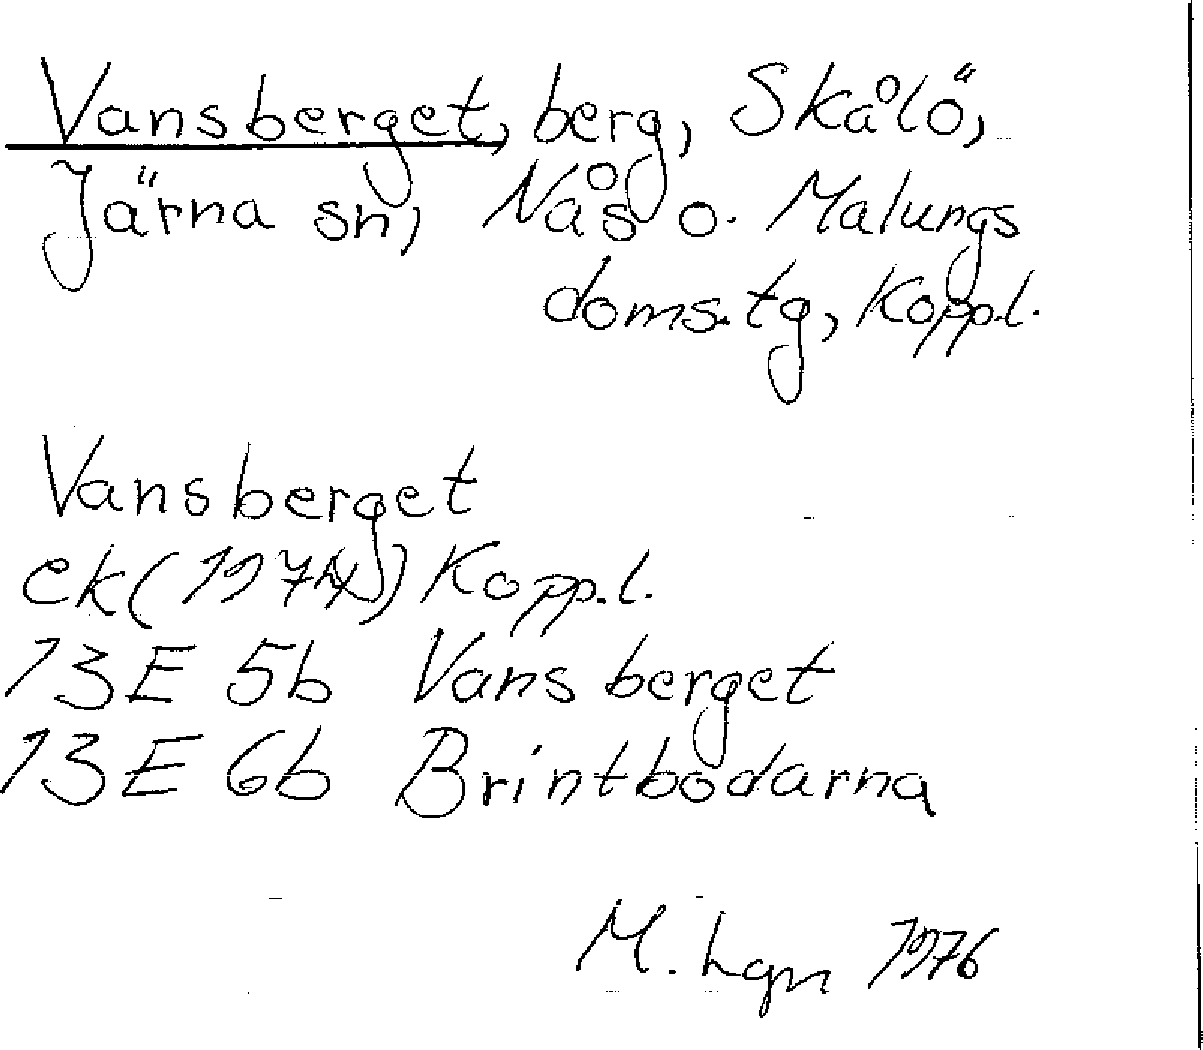 Vansberget, berg, Skålö,
Järna sn, Nås o. Malungs
doms.tg, Koppl.
Vansberget
ek (1974) Kopp.l.
13E 5b Vansberget
13E 6b Brintbodarna
M. Lgn 1976